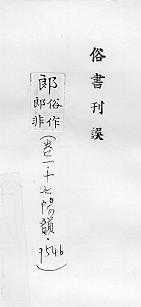 俗書刊誤
郎俗作
郎非
(卷一・十七陽韻・9546)